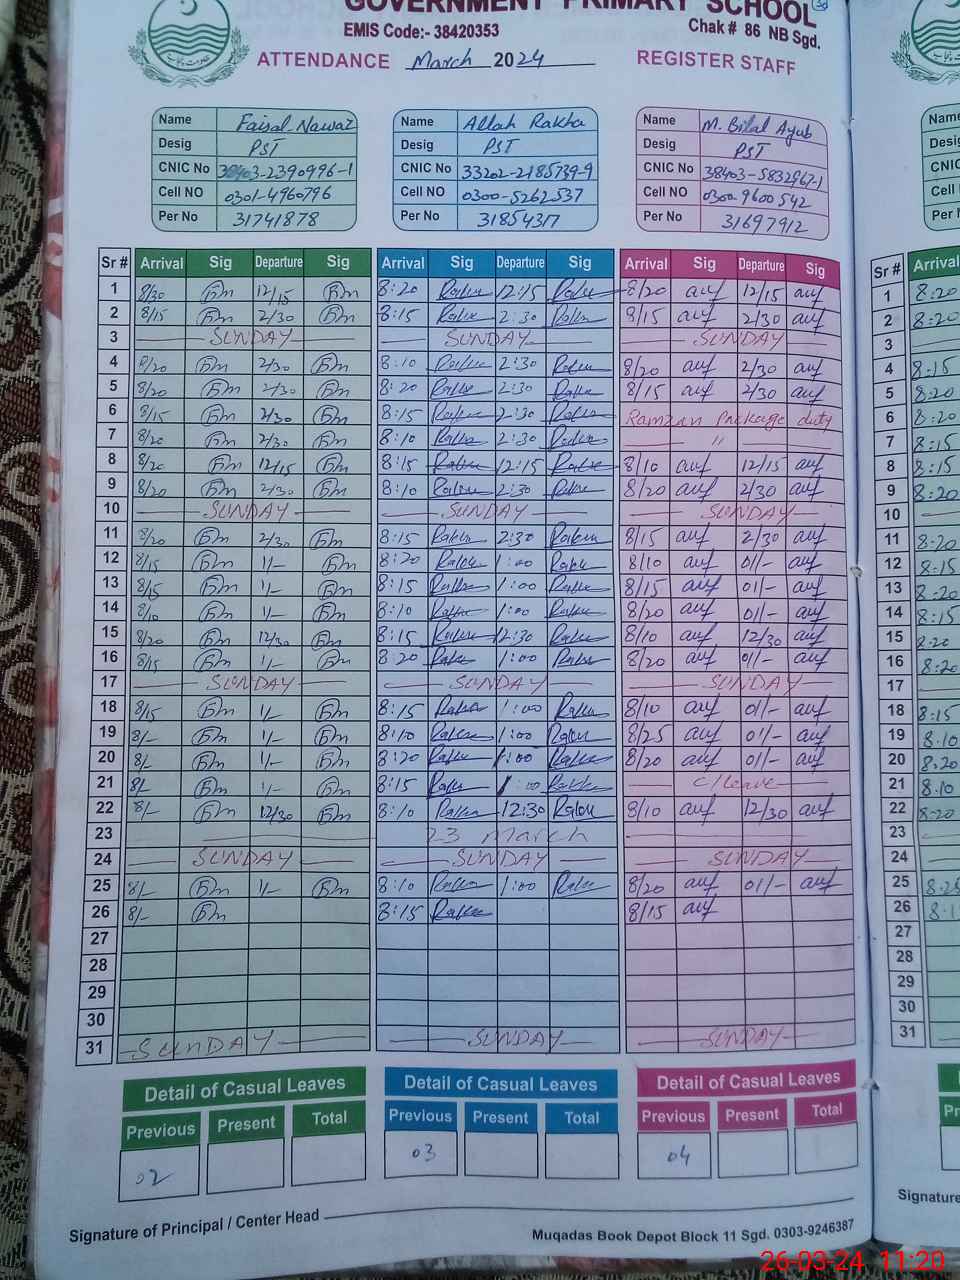 GOVERNMENT PRIMARY SCHOOL
EMIS Code:- 38420353 Chak # 86 NB Sgd.
ATTENDANCE March 2024 REGISTER STAFF
Name Faisal Nawaz Name Allah Rakha Name M. Bilal Ayub Name
Desig PST Desig PST Desig PST Desig
CNIC No 38403-2390996-1 CNIC No 33202-2185739-9 CNIC No 38403-5832967-1 CNIC
Cell NO 0301-4960796 Cell NO 0300-5262537 Cell NO 0300-9600542 Cell
Per No 31741878 Per No 31854317 Per No 31697912 Per N
Sr # Arrival Sig Departure Sig Arrival Sig Departure Sig Arrival Sig Departure Sig Sr # Arrival
1 8/30 Fm 12/15 Fm 8:20 Rakha 12:15 Rakha 8/20 auf 12/15 auf 1 8:20
2 8/15 Fm 2/30 Fm 8:15 Rakha 2:30 Rakha 8/15 auf 2/30 auf 2 8:20
3 SUNDAY SUNDAY SUNDAY 3
4 8/20 Fm 2/30 Fm 8:10 Rakha 2:30 Rakha 8/20 auf 2/30 auf 4 8:15
5 8/20 Fm 2/30 Fm 8:20 Rakha 2:30 Rakha 8/15 auf 2/30 auf 5 8:20
6 8/15 Fm 2/30 Fm 8:15 Rakha 2:30 Rakha Ramzan Package duty 6 8:20
7 8/20 Fm 2/30 Fm 8:10 Rakha 2:30 Rakha " 7 8:15
8 8/20 Fm 12/15 Fm 8:15 Rakha 12:15 Rakha 8/10 auf 12/15 auf 8 8:15
9 8/20 Fm 2/30 Fm 8:10 Rakha 2:30 Rakha 8/20 auf 2/30 auf 9 8:20
10 SUNDAY SUNDAY SUNDAY 10
11 8/20 Fm 2/30 Fm 8:15 Rakha 2:30 Rakha 8/15 auf 2/30 auf 11 8:20
12 8/15 Fm 1/- Fm 8:20 Rakha 1:00 Rakha 8/10 auf 01/- auf 12 8:15
13 8/15 Fm 1/- Fm 8:15 Rakha 1:00 Rakha 8/15 auf 01/- auf 13 8:20
14 8/10 Fm 1/- Fm 8:10 Rakha 1:00 Rakha 8/20 auf 01/- auf 14 8:15
15 8/20 Fm 12/30 Fm 8:15 Rakha 12:30 Rakha 8/10 auf 12/30 auf 15 8:20
16 8/15 Fm 1/- Fm 8:20 Rakha 1:00 Rakha 8/20 auf 01/- auf 16 8:20
17 SUNDAY SUNDAY SUNDAY 17
18 8/15 Fm 1/- Fm 8:15 Rakha 1:00 Rakha 8/10 auf 01/- auf 18 8:15
19 8/- Fm 1/- Fm 8:10 Rakha 1:00 Rakha 8/25 auf 01/- auf 19 8:10
20 8/- Fm 1/- Fm 8:20 Rakha 1:00 Rakha 8/20 auf 01/- auf 20 8:20
21 8/- Fm 1/- Fm 8:15 Rakha 1:00 Rakha C/leave 21 8:10
22 8/- Fm 12/30 Fm 8:10 Rakha 12:30 Rakha 8/10 auf 12/30 auf 22 8:20
23 23 March 23
24 SUNDAY SUNDAY SUNDAY 24
25 8/- Fm 1/- Fm 8:10 Rakha 1:00 Rakha 8/20 auf 01/- auf 25 8:25
26 8/- Fm 8:15 Rakha 8/15 auf 26
27 27
28 28
29 29
30 30
31 SUNDAY SUNDAY SUNDAY 31
Detail of Casual Leaves Detail of Casual Leaves Detail of Casual Leaves
Previous Present Total Previous Present Total Previous Present Total
02 03 04
Signature of Principal / Center Head Signature
Muqadas Book Depot Block 11 Sgd. 0303-9246387
26-03-24 11:20